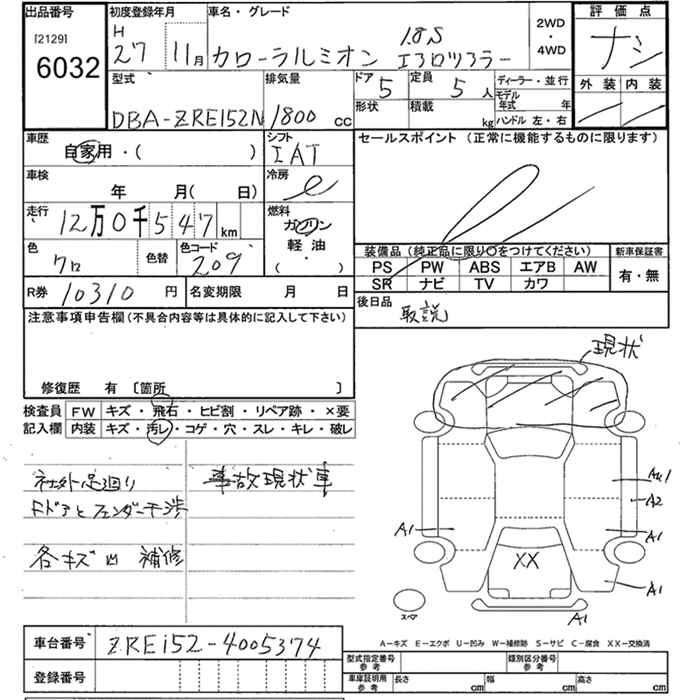 出品番号
[2129]
6032
初度登録年月
H
27 11月
車名・グレード
1.8S
カローラルミオン エアロツアラー
2WD
・
4WD
評価点
ナシ
外装 内装
型式
DBA-ZRE152N
排気量
1800 cc
ドア
5
定員
5 人
形状
積載
kg
ディーラー・並行
モデル年式 年
ハンドル 左・右
車歴
自家用・( )
シフト
IAT
セールスポイント (正常に機能するものに限ります)
車検
年 月( 日)
冷房
走行
12万0千547km
燃料
ガソリン
軽油
( )
色
クロ
色替
色コード
209
装備品 (純正品に限り○をつけてください)
新車保証書
PS PW ABS エアB AW
SR ナビ TV カワ
有・無
R券 10310 円
名変期限 月 日
後日品
取説
注意事項申告欄(不具合内容等は具体的に記入して下さい)
修復歴 有 〔箇所 〕
現状
検査員
記入欄
FW キズ・飛石・ヒビ割・リペア跡・×要
内装 キズ・汚レ・コゲ・穴・スレ・キレ・破レ
社外足廻り
事故現状車
Fドアとフェンダー干渉
各キズ凹 補修
A1
A2
A1
A1
XX
A1
A1
スペア
A-キズ E-エクボ U-凹み W-補修跡 S-サビ C-腐食 XX-交換済
車台番号 ZRE152-4005374
登録番号
型式指定番号
参考
類別区分番号
参考
車庫証明用
参考
長さ cm
幅 cm
高さ cm